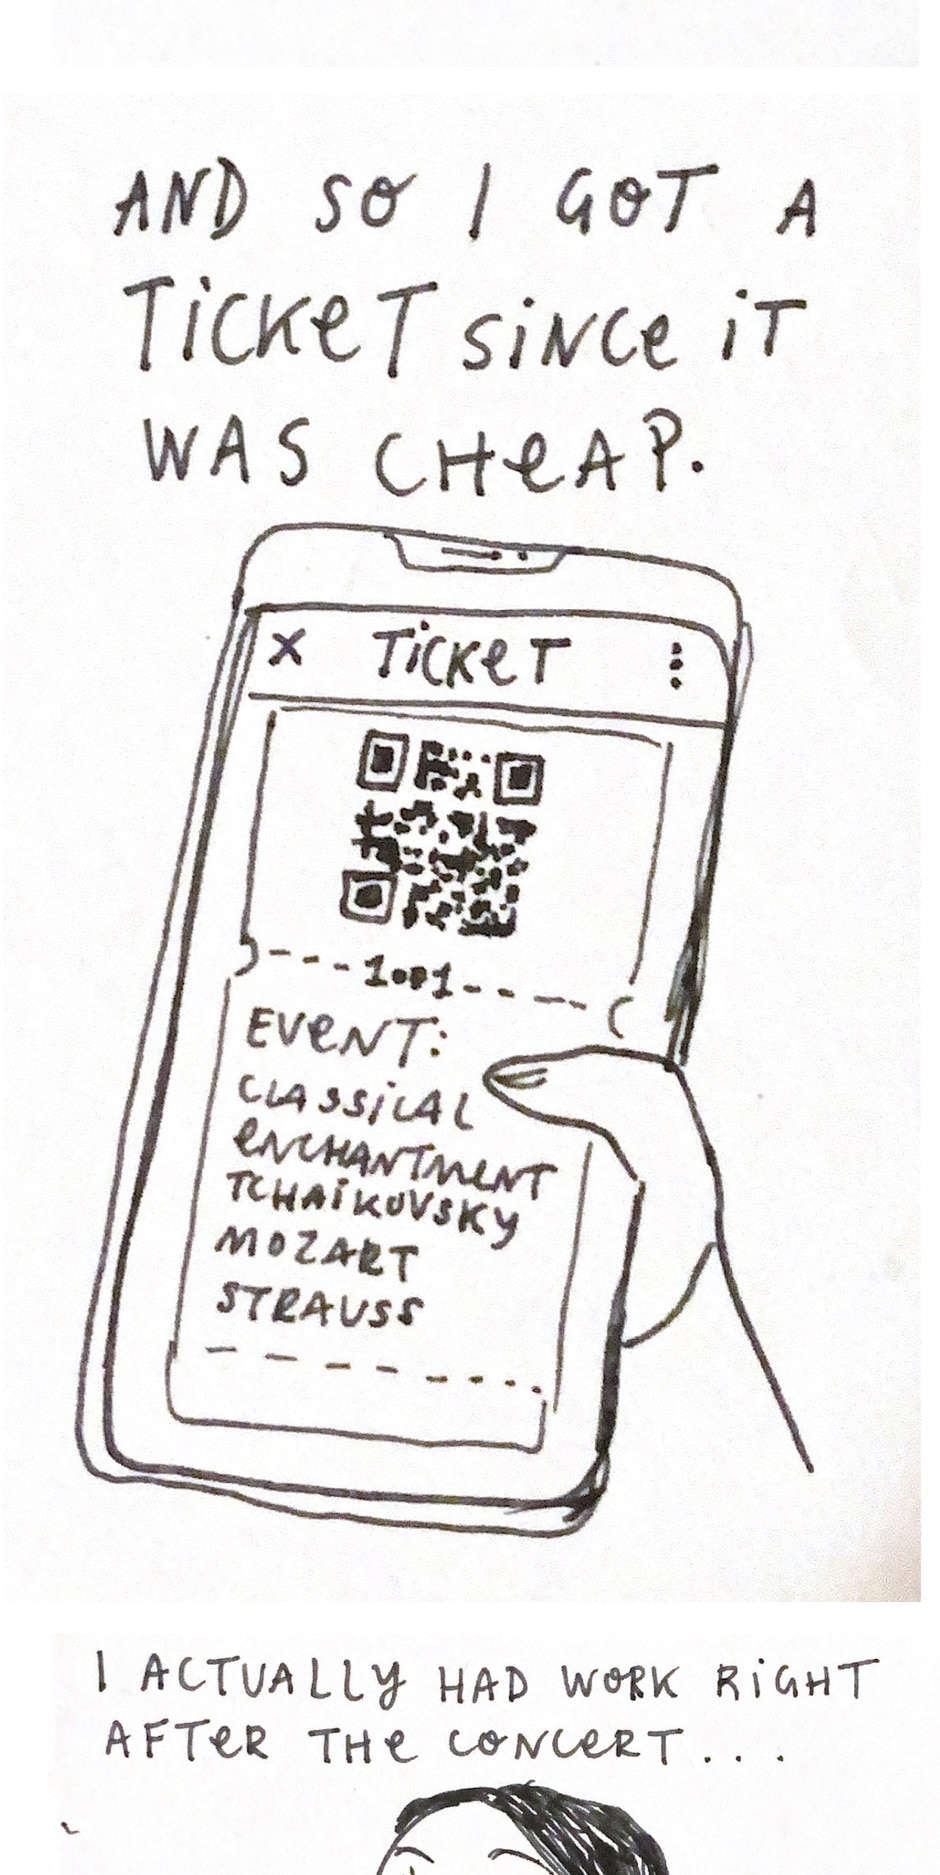 AND SO I GOT A
TICKET SINCE IT
WAS CHEAP.
X TICKET
1 OF 1
EVENT:
CLASSICAL
ENCHANTMENT
TCHAIKOVSKY
MOZART
STRAUSS
I ACTUALLY HAD WORK RIGHT
AFTER THE CONCERT...